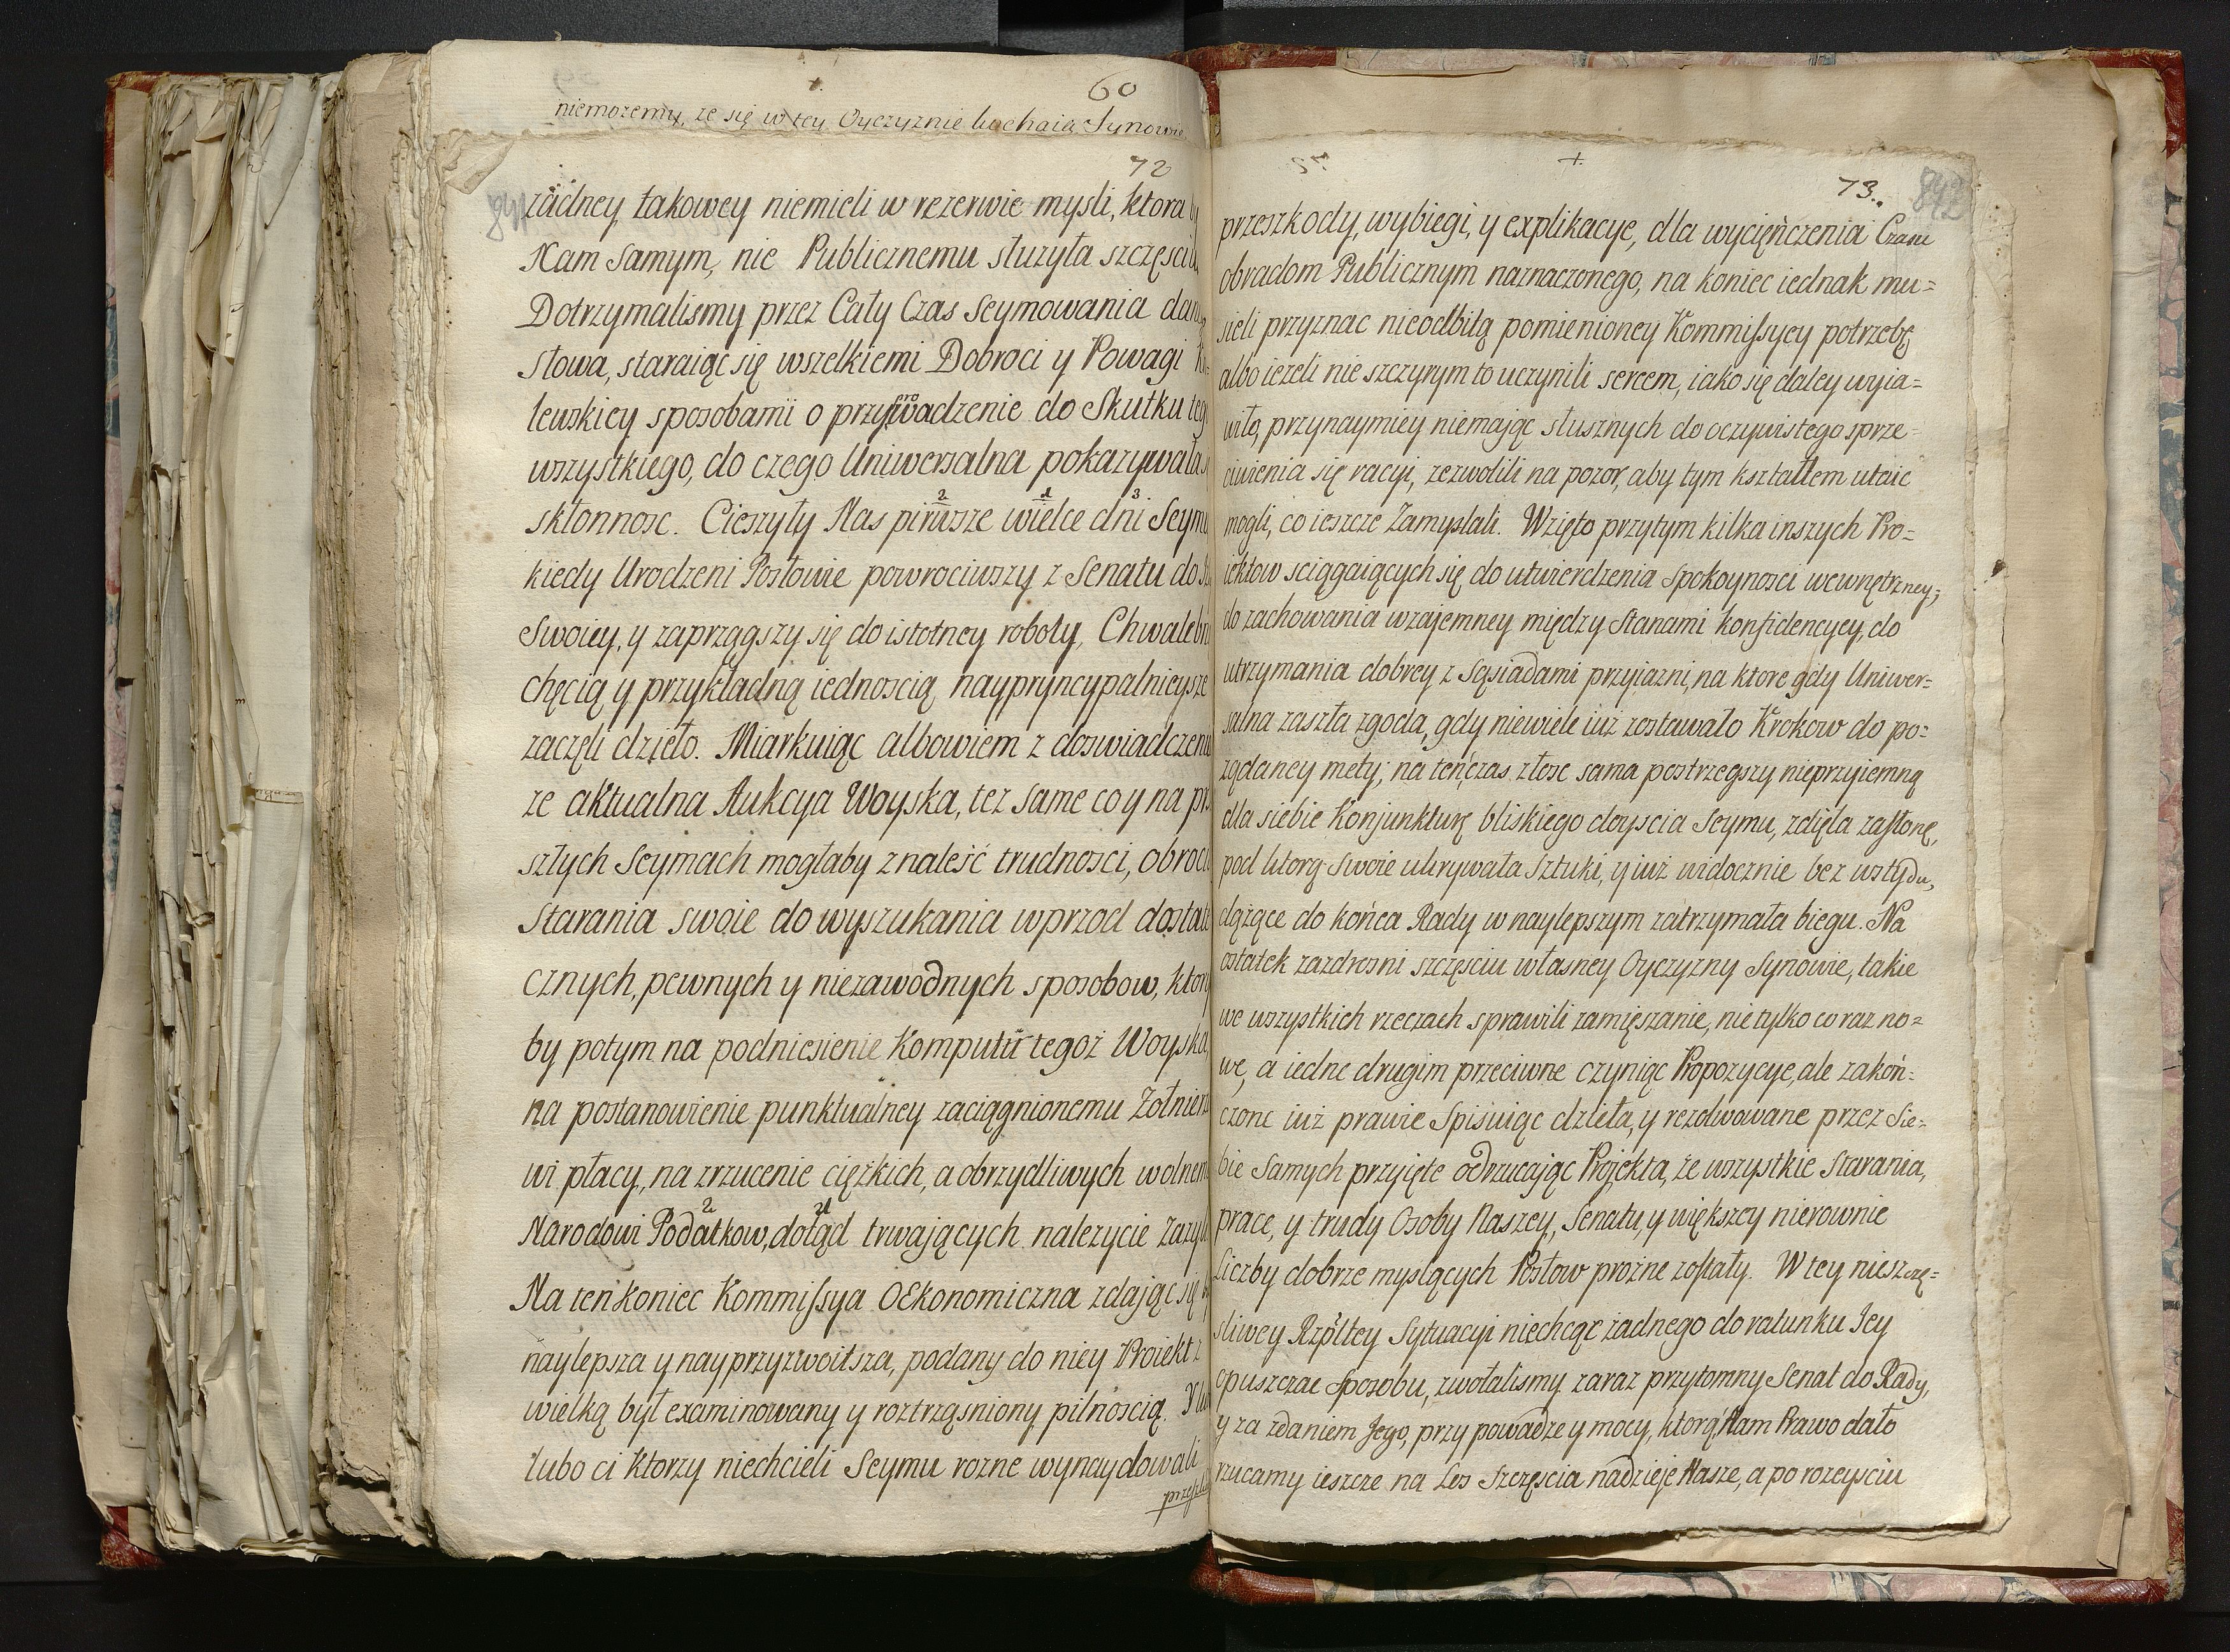 60
niemozemy, ze się w tey Oyczyznie kochaią Synowie
72
zadney takowey niemieli w rezerwie mysli, ktora
Nam samym, nie Publicznemu słuzyła
Dotrzymalismy przez Cały Czas Seymowania
słowa, staraiąc się wszelkiemi Dobroci y Powagi
lewskiey sposobami o przyprowadzenie do Skutku
wszystkiego, do czego Uniwersalna pokazywała
skłonnosc. Cieszyły Nas pirwsze wielce dni
kiedy Urodzeni Posłowie powrociwszy z Senatu do
Swoiey, y zaprzągszy się do istotney roboty,
chęcią y przykładną iednoscią naypryncypalnieysze
zaczęli dzieło. Miarkuiąc albowiem z
ze aktualna Aukcya Woyska, tez same co y na
szłych Seymach mogłaby znaleść trudnosci,
starania swoie do wyszukania wprzod
cznych, pewnych y niezawodnych sposobow,
by potym na podniesienie Komputu tegoż Woyska,
na postanowienie punktualney zaciągnionemu
wi płacy, na zrzucenie cięzkich, a obrzydliwych
Narodowi Podatkow, dotąd trwających nalezycie
Na ten koniec Kommissya OEkonomiczna zdając się
naylepsza y nayprzyzwoitsza, podany do niey Proiekt z
wielką był examinowany y roztrząsniony pilnoscią.
lubo ci ktorzy niechcieli Seymu rozne wynaydowali
73.
842
przeszkody, wybiegi, y explikacye, dla wycięńczenia Czasu
obradom Publicznym naznaczonego, na koniec iednak mu=
sieli przyznac nieodbitą pomienioney Kommissycy potrzebę
albo iezeli nie szczyrym to uczynili sercem, iako się daley wyia=
wiło, przynaymiey niemając słusznych do oczywistego sprze=
ciwienia się racyi, zezwolili na pozor, aby tym kształtem utaic
mogli, co ieszcze Zamyslali. Wzięto przytym kilka inszych Pro=
iektow sciągaiących się do utwierdzenia spokoynosci wewnętrzney,
do zachowania wzajemney między Stanami konfidencyey, do
utrzymania dobrey z Sąsiadami przyiazni, na ktore gdy Uniwer=
salna zaszła zgoda, gdy niewiele iuż zostawało Krokow do po=
ządaney mety; na teńczas złosc sama postrzegszy nieprzyiemną
dla siebie Konjunkturę bliskiego doyscia Seymu, zdięła zasłonę,
pod ktorą swoie ukrywała Sztuki, y iuż widocznie bez wstydu,
dążące do końca Rady w naylepszym zatrzymała biegu. Na
ostatek zazdrosni szczęsciu własney Oyczyzny Synowie, takie
we wszystkich rzeczach sprawili zamięszanie, nie tylko coraz no=
we, a iedne drugim przeciwne czyniąc Propozycye, ale zakoń=
czone iuż prawie Spisuiąc dzieła, y rezolwowane przez Sie=
bie samych przyięte odrzucając Projekta, że wszystkie starania,
prace, y trudy Osoby Naszey, Senatu, y większey nierownie
Liczby dobrze myslących Posłow prożne zostały. W tey nieszczę=
sliwey Rzpltey Sytuacyi niechcąc żadnego do ratunku Jey
opuszczac sposobu, zwołalismy zaraz przytomny Senat do Rady,
y za zdaniem Jego, przy powadze y mocy, ktorą Nam Prawo dało
rzucamy ieszcze na Los Szczęscia nadzieje Nasze, a po rozeysciu